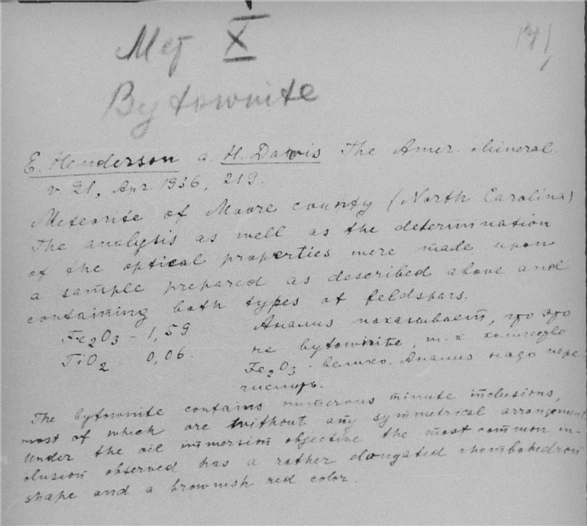 Met X
141
Bytownite
E. Henderson a. H. Davis The Amer. Mineral.
v 21, Apr 1936, 213.
Meteorite of Moore county (North Carolina)
The analysis as well as the determination
of the optical properties were made upon
a sample prepared as described above and
containing both types of feldspars.
Fe2O3 - 1,59 Анализ показывает, что это
TiO2 0,06. не bytownite, т.к. количество
Fe2O3 - велико. Анализ надо пере-
числить.
The bytownite contains numerous minute inclusions,
most of which are without any symmetrical arrangement,
Under the oil immersion objective the most common in-
clusion observed has a rather elongated rhombohedron
shape and a brownish red color.